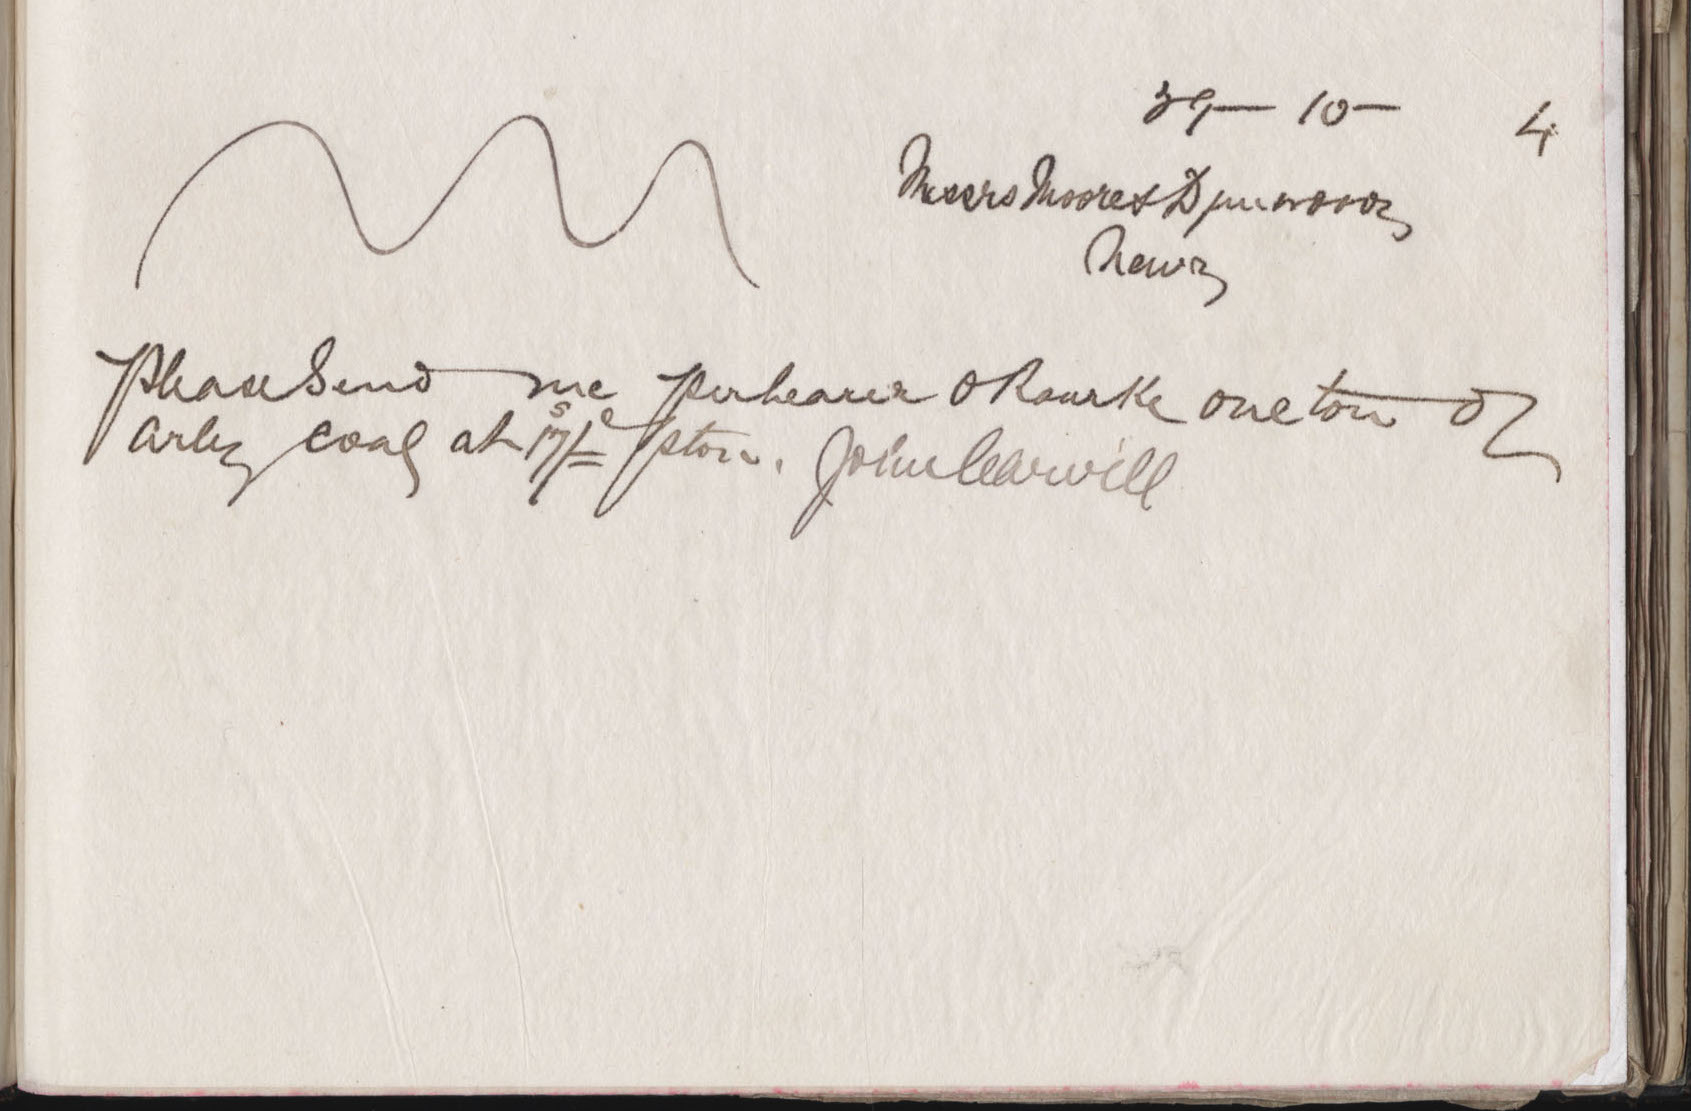 29 - 10 - 4
Messrs Moore & Dinwoody
Newry
Please Send me per bearer O Rourke one ton of
Arley coal at 17/= p ton. John Carvill